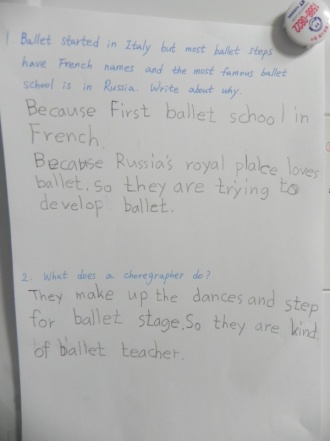 1 Ballet started in Italy but most ballet steps
have French names and the most famous ballet
school is in Russia. Write about why.
Because First ballet school in
French.
Because Russia's royal place loves
ballet. So they are trying to
develop ballet.
2. What does a choregrapher do?
They make up the dances and step
for ballet stage. So they are kind
of ballet teacher.